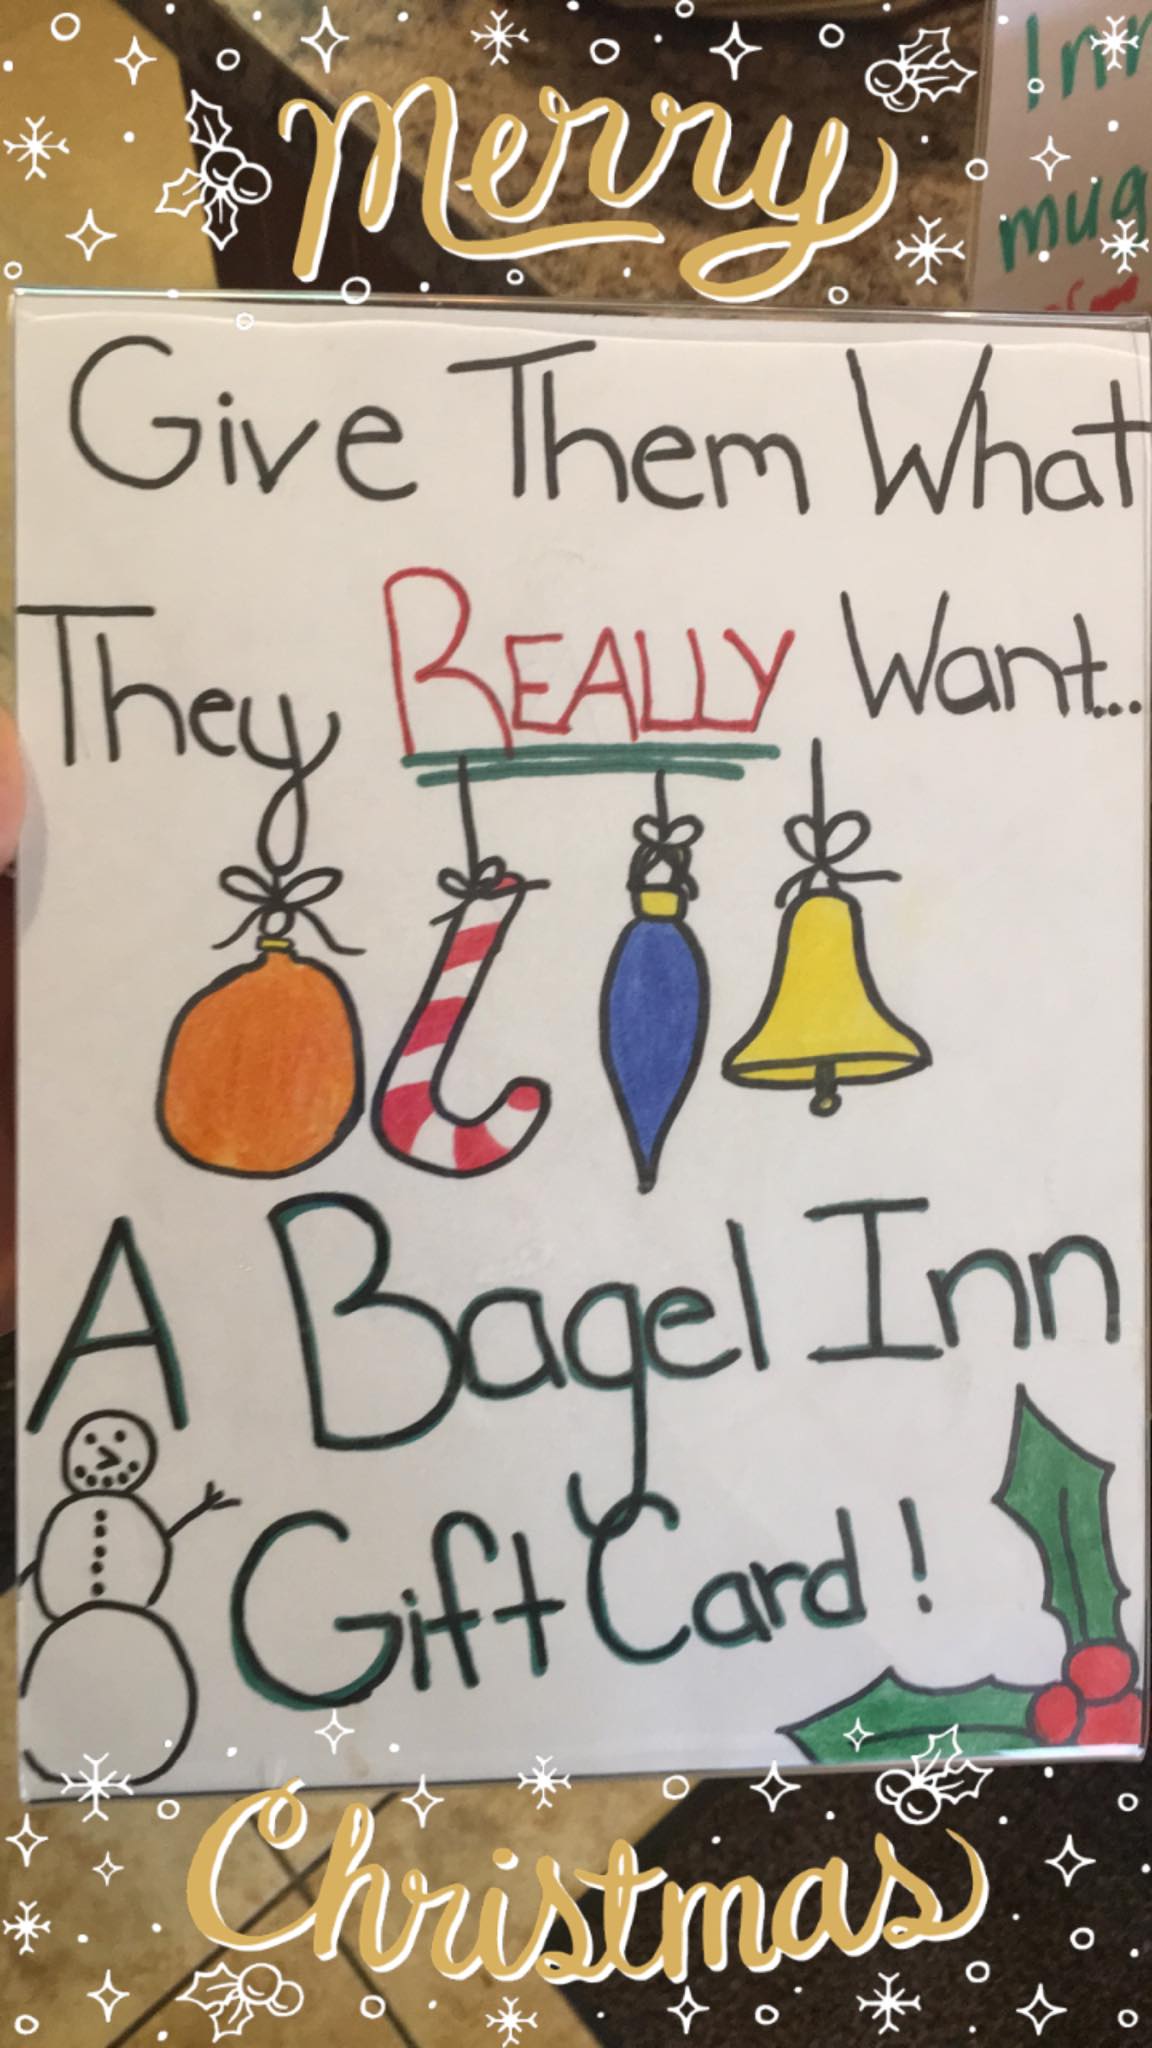 Merry
Inn
mug
Give Them What
They REALLY Want...
A Bagel Inn
Gift Card!
Christmas